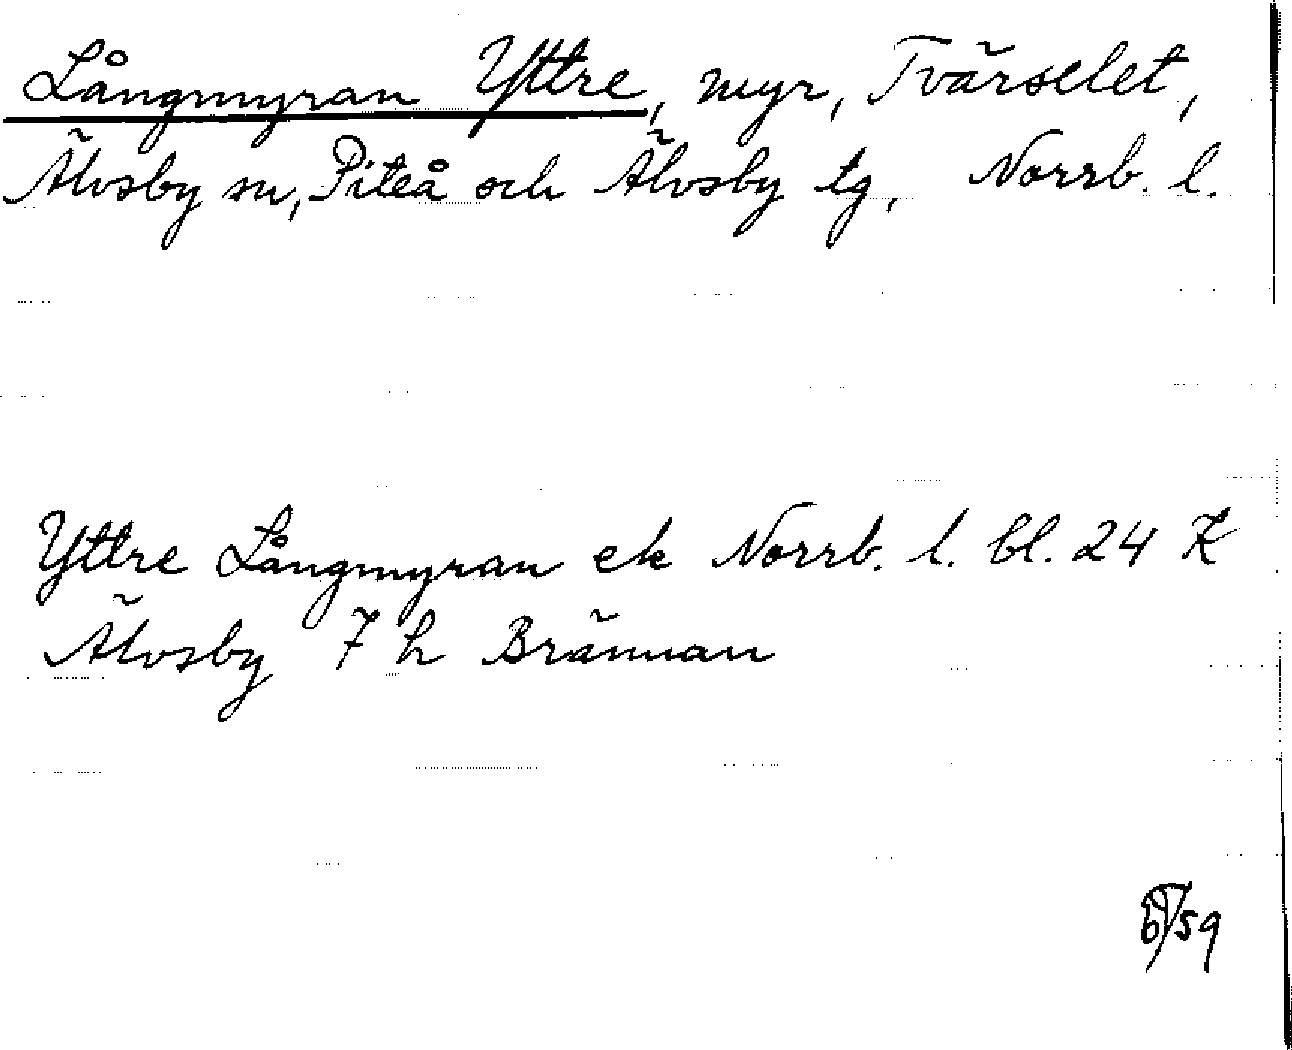 Långmyran Yttre, myr, Tvärselet,
Älvsby sn, Piteå och Älvsby tg, Norrb. l.
Yttre Långmyran ek Norrb. l. bl. 24 K
Älvsby 7 h Brännan
/59